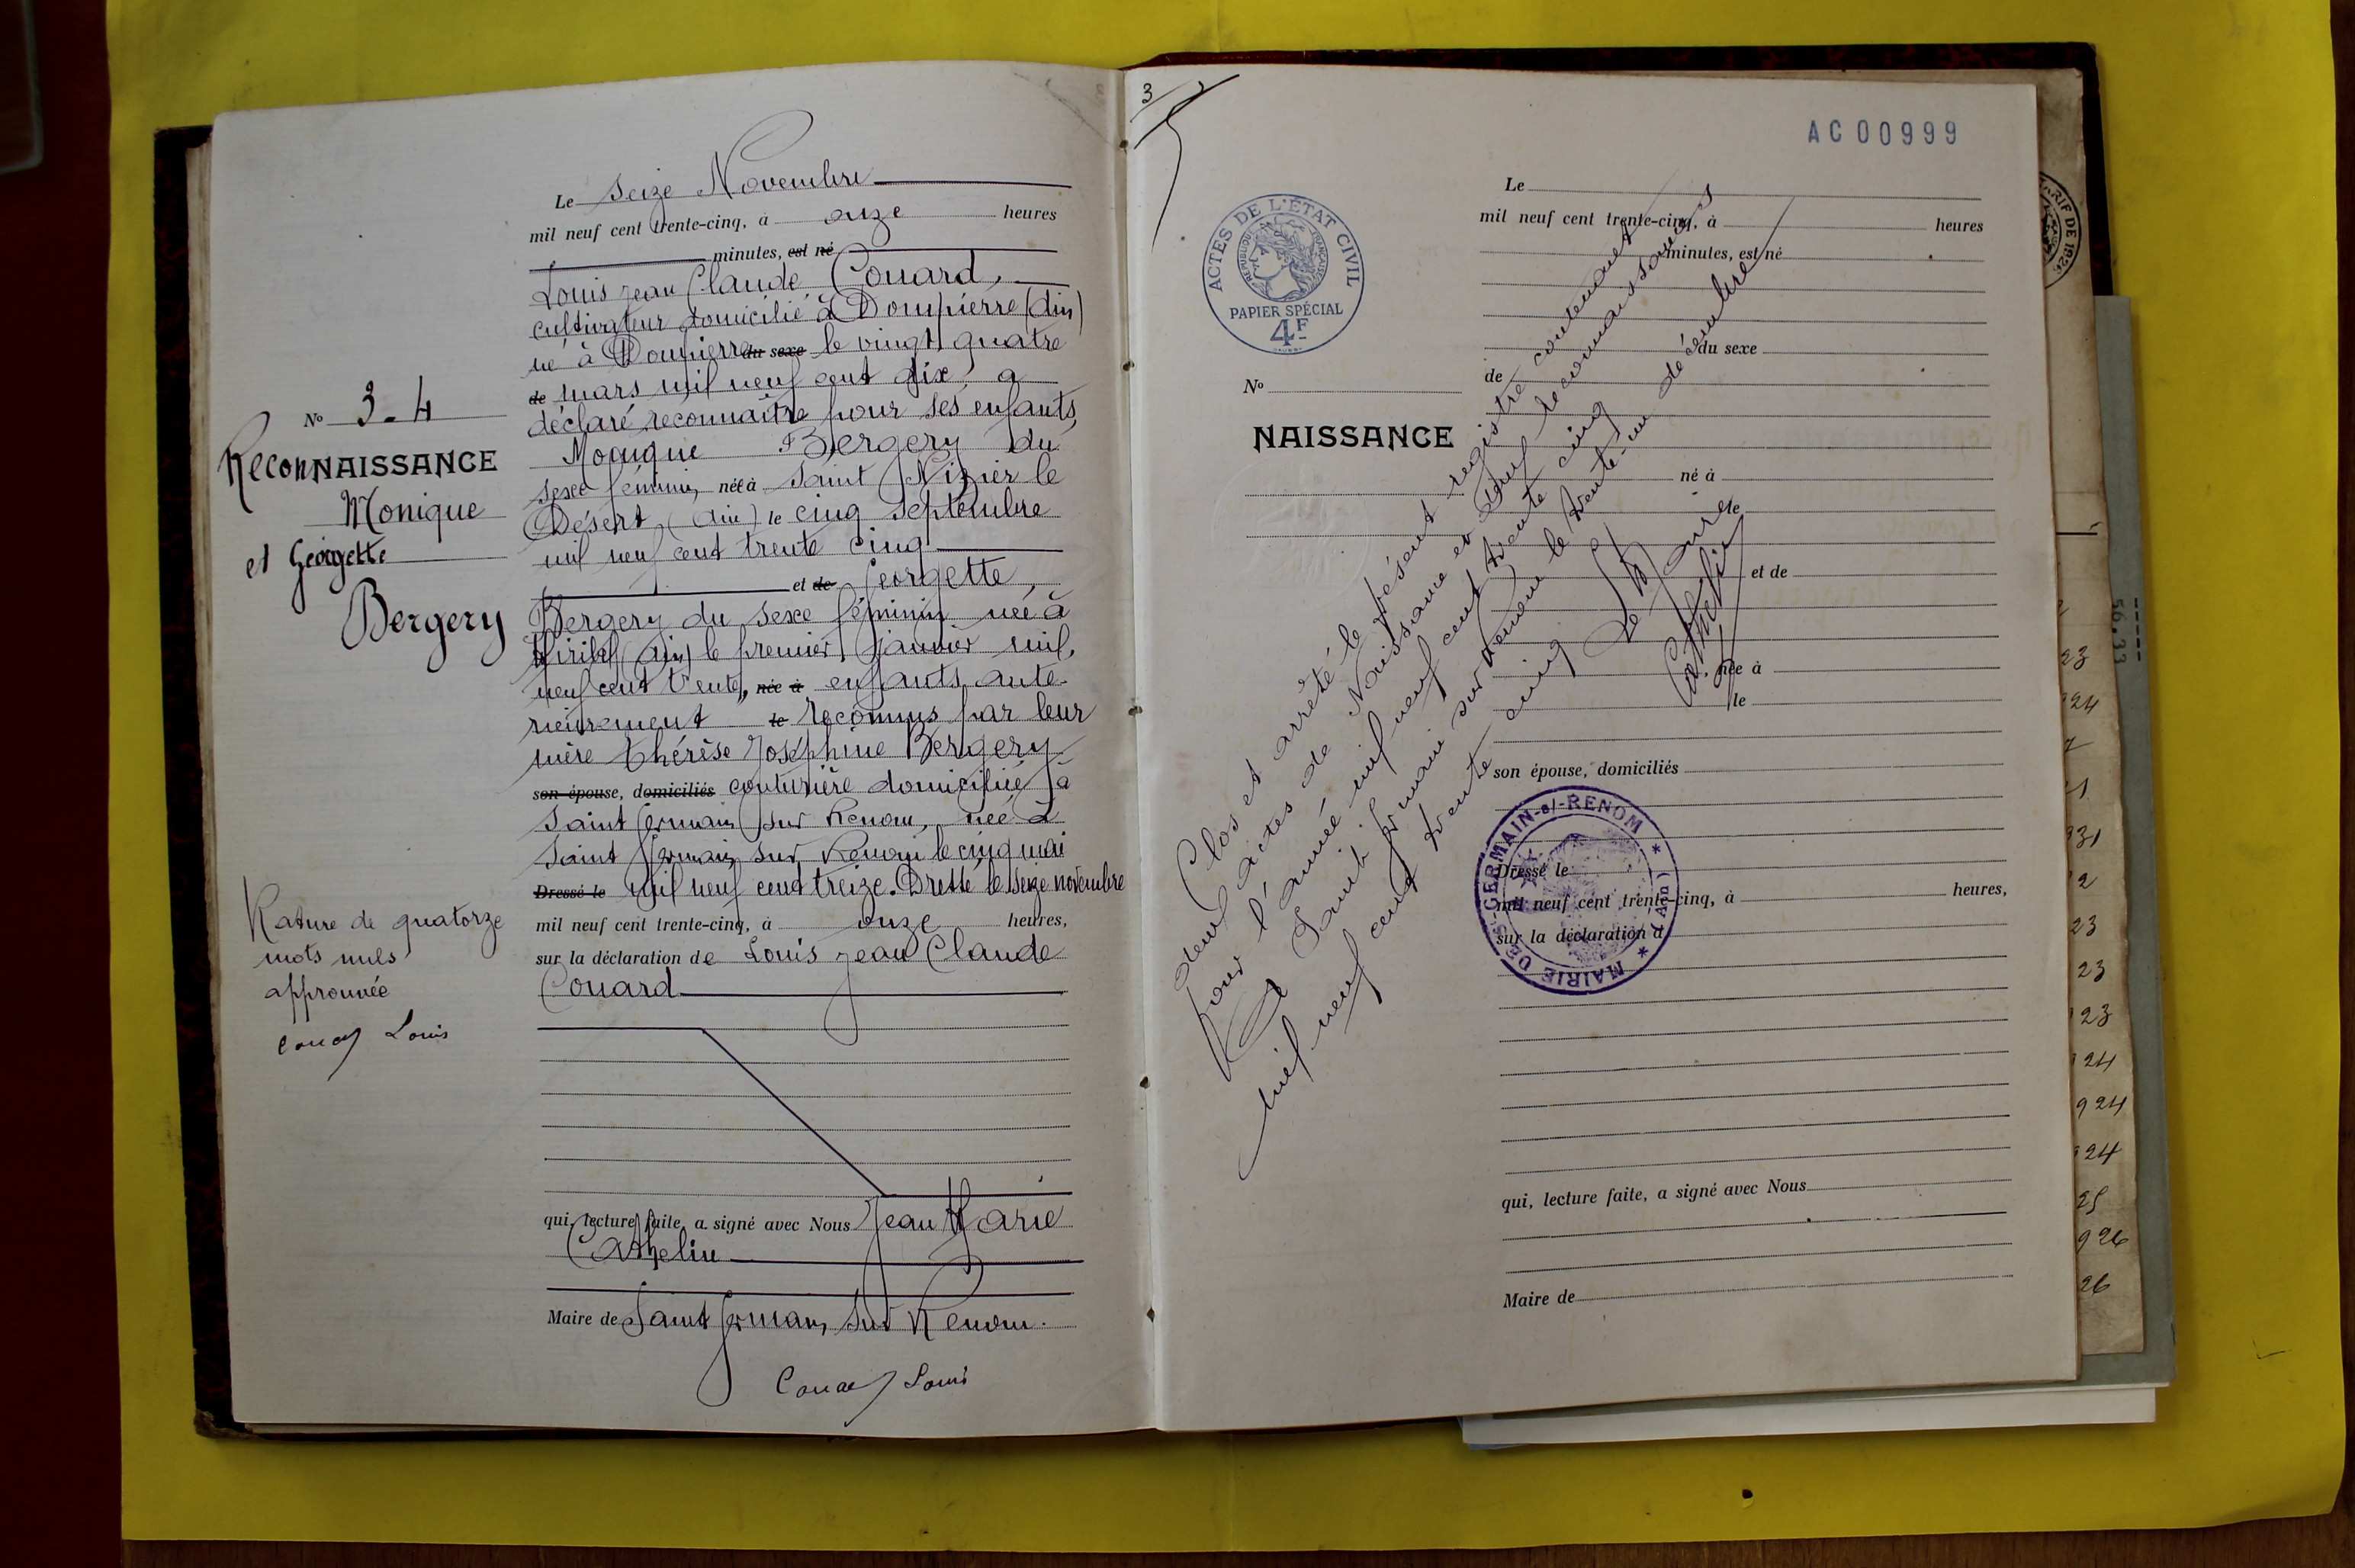 N° 3-4
ReconNAISSANCE
Monique
et Georgette
Bergery
Rature de quatorze
mots nuls
approuvée
Louis
Le seize Novembre
mil neuf cent trente-cinq, à onze heures
minutes, est né
Louis Jean Claude Couard,
cultivateur domicilié à Dompierre (Ain)
né à Dompierre du sexe le vingt quatre
de mars mil neuf cent dix, a
déclaré reconnaître pour ses enfants,
Monique Bergery du
sexe féminin, née à Saint Nizier le
Désert (Ain) le cinq septembre
mil neuf cent trente cinq
et de Georgette
Bergery du sexe féminin née à
(Ain) le premier janvier mil
neuf cent trente, née à enfants anté-
rieurement le reconnus par leur
mère Thérèse Joséphine Bergery
son épouse, domiciliés couturière domiciliée à
Saint Germain sur Renom, née à
Saint Germain sur Renom le cinq mai
Dressé le mil neuf cent treize. Dressé le seize novembre
mil neuf cent trente-cinq, à onze heures,
sur la déclaration de Louis Jean Claude
Couard
qui, lecture faite, a signé avec Nous Jean Marie
Cathelin
Maire de Saint Germain sur Renom.
Louis
3
AC00999
ACTES DE L'ÉTAT CIVIL
RÉPUBLIQUE FRANÇAISE
PAPIER SPÉCIAL
4F
N°
NAISSANCE
Le
mil neuf cent trente-cinq, à heures
minutes, est né
du sexe
de
né à
le
et de
née à
le
son épouse, domiciliés
Dressé le
mil neuf cent trente-cinq, à heures,
sur la déclaration d
qui, lecture faite, a signé avec Nous
Maire de
Clos et arrêté le présent registre contenant
deux actes de Naissance et deux reconnaissances
pour l'année mil neuf cent trente cinq
A Saint Germain sur Renom le trente-un décembre
mil neuf cent trente cinq Le Maire
Cathelin
MAIRIE DE ST-GERMAIN-s/-RENOM * (Ain) *
TARIF DE 1926
56.33
23
924
931
2
23
23
23
24
924
24
25
926
26